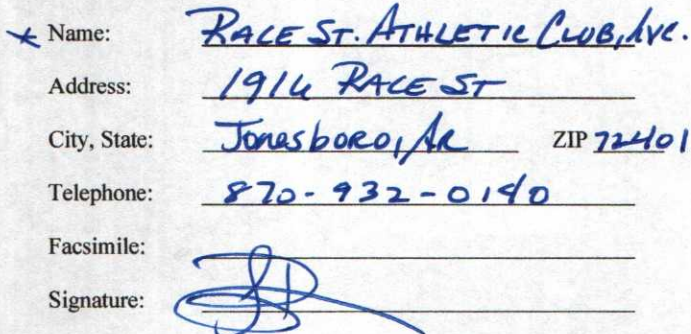 * Name: RACE ST. ATHLETIC CLUB, INC.
Address: RACE ST
City, State: Jonesboro, AR ZIP 72401
Telephone: 870-932-0140
Facsimile:
Signature: